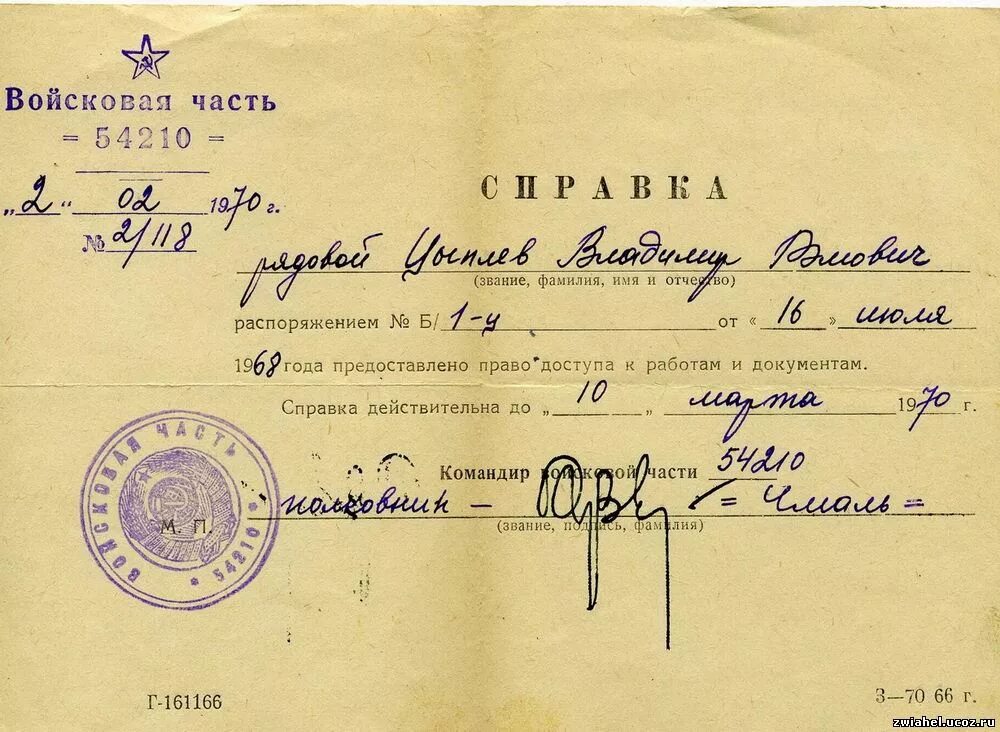 Войсковая часть
= 54210 =
„2“ 02 1970 г.
№ 2/118
СПРАВКА
рядовой Цыплев Владимир Рэмович
(звание, фамилия, имя и отчество)
распоряжением № Б/ 1-у от « 16 » июля
1968 года предоставлено право доступа к работам и документам.
Справка действительна до „ 10 „ марта 1970 г.
Командир войсковой части 54210
полковник – = Чмаль =
(звание, подпись, фамилия)
М. П.
ВОЙСКОВАЯ ЧАСТЬ * 54210 *
Г-161166
З—70 66 г.
zwiahel.ucoz.ru